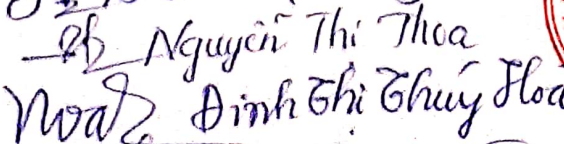 Nguyễn Thị Thoa
Đinh Thị Thuý Hoa